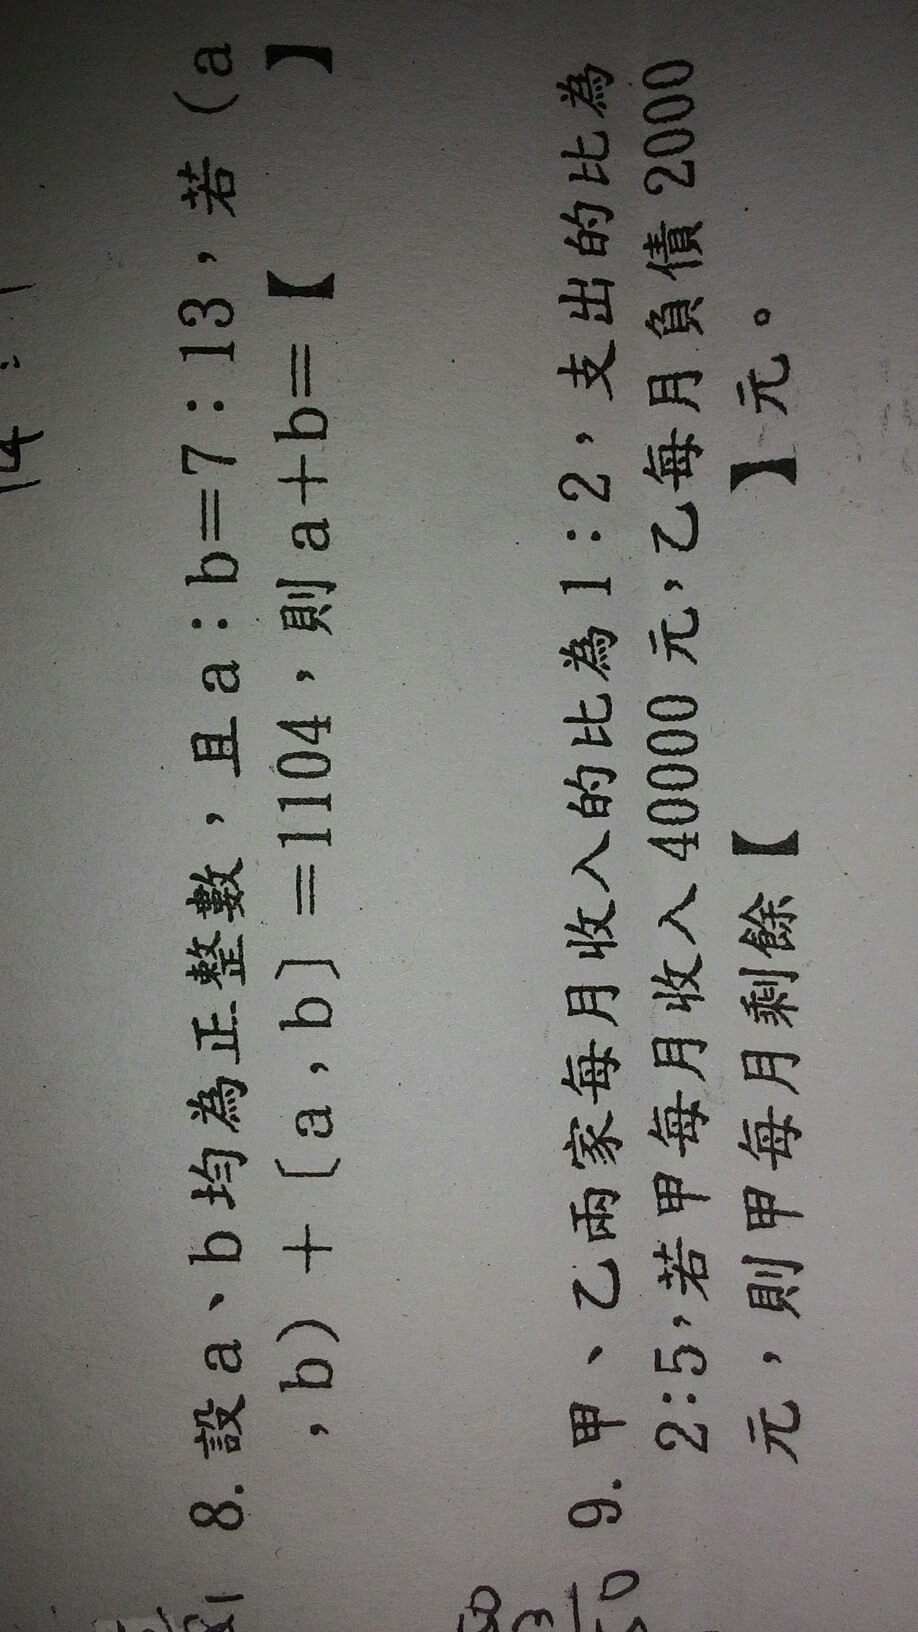 8. 設a、b均為正整數，且a:b=7:13，若(a
,b)+[a,b]=1104，則a+b=【　　】
9. 甲、乙兩家每月收入的比為1:2，支出的比為
2:5，若甲每月收入40000元，乙每月負債2000
元，則甲每月剩餘【　　】元。
14 :